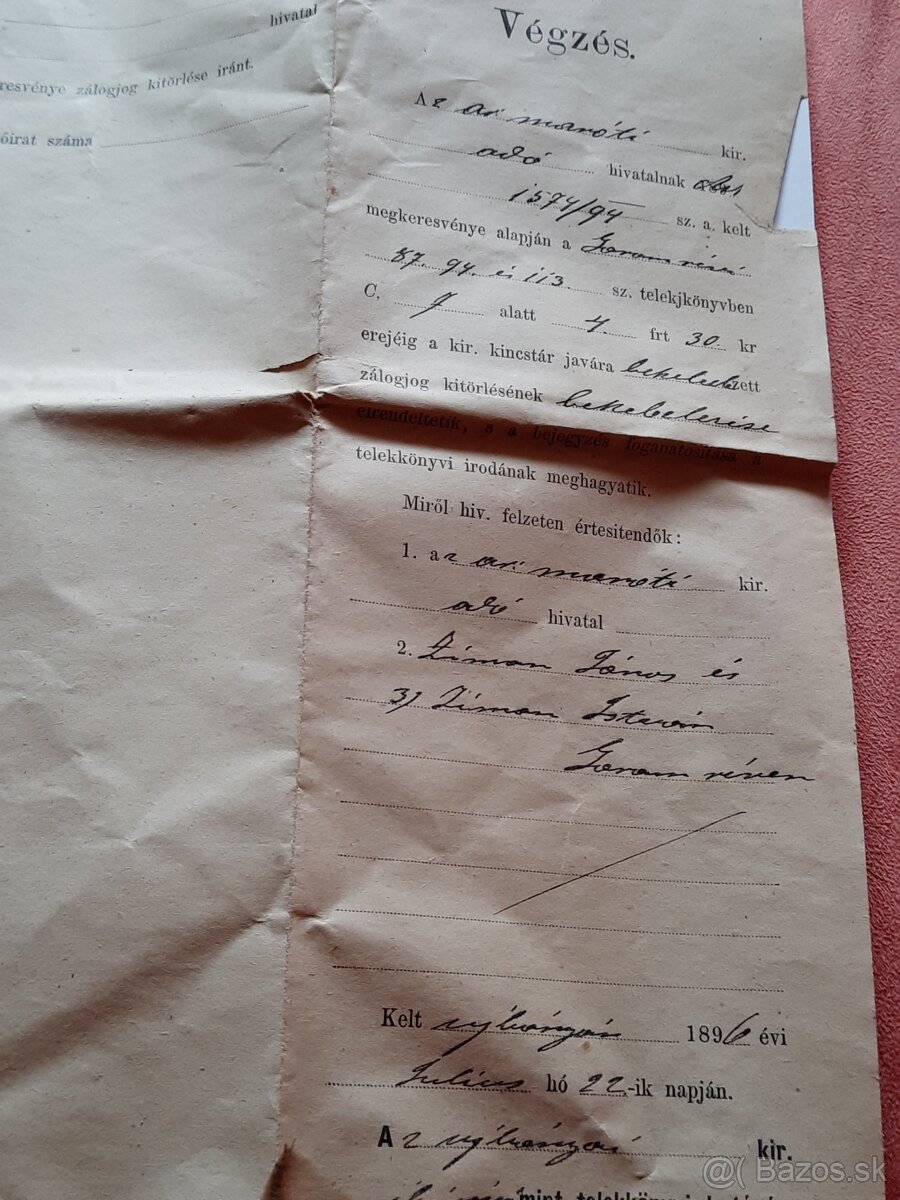 hivatal
resvénye zálogjog kitörlése iránt.
őirat száma
Végzés.
Az ar. maróti kir.
adó hivatalnak
1574/94 sz. a. kelt
megkeresvénye alapján a Garam révi
87. 94. és 113. sz. telekjkönyvben
C. 7 alatt 4 frt 30. kr
erejéig a kir. kincstár javára bekebelezett
zálogjog kitörlésének bekebelezése
elrendeltetik, s a bejegyzés foganatositása a
telekkönyvi irodának meghagyatik.
Miről hiv. felzeten értesitendők:
1. az ar. maróti kir.
adó hivatal
2. Ziman János és
3) Ziman István
Garam réven
Kelt ujbányán 1896 évi
Julius hó 22-ik napján.
Az ujbányai kir.
mint telekkönyvi
@ Bazos.sk